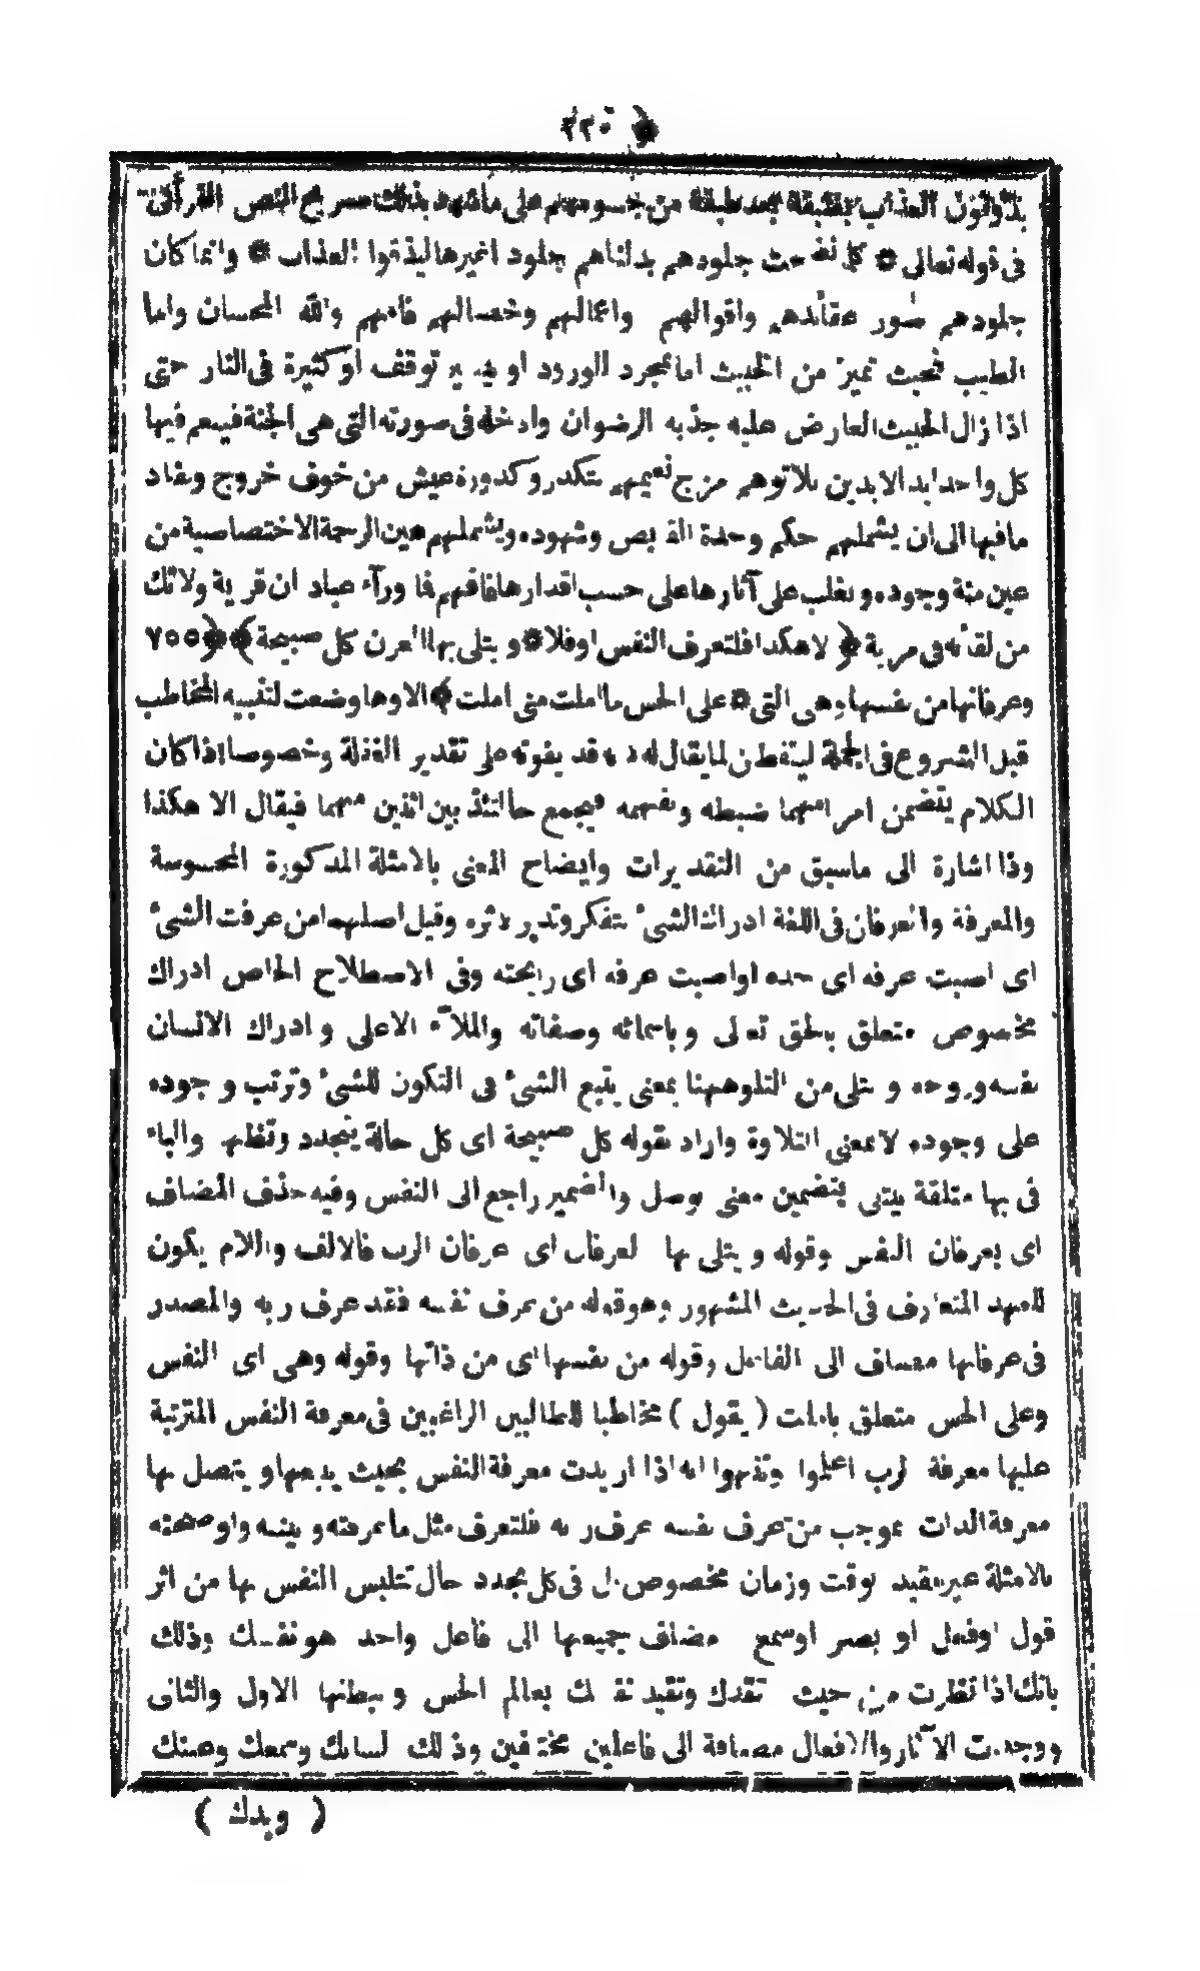 يذوقون العذاب بقشيفة بعد طبقة من جسومهم على ما شهد بذلك صريح النص القرآنى
فى قوله تعالى ۞ كلما نضجت جلودهم بدلناهم جلودا غيرها ليذوقوا العذاب ۞ وانما كان
جلودهم صور عقائدهم واقوالهم واعمالهم وخصالهم فافهم والله المحسان واما
الطيب بحيث تميز من الخبيث اما بمجرد الورود او توقف او كثيرة فى النار حتى
اذا زال الخبيث العارض عليه جذبه الرضوان وادخله فى صورته التى هى الجنة فينعم فيها
كل واحد ابد الابدين بلا توهم مزج نعيمهم بتكدر وكدورة عيش من خوف خروج ونفاد
مافيها الى ان يشملهم حكم وحدة القابض وشهوده ويشملهم عين الرحمة الاختصاصية من
عين منة وجوده ونغلب على آثارها على حسب اقدارها فافهم فما ورآء عباد ان قرية ولاتك
من لقائه فى مرية ﴿ لا هكذا فلتعرف النفس اوفلا ۞ ويتلى بها العرفان كل صبيحة ﴾ ﴿ ٧٥٥
وعرفانها من نفسها وهى التى ۞ على الحس ما املت منى املت ﴾ الاوها وضعت لتنبيه المخاطب
قبل الشروع فى الجملة ليتفطن لما يقال له قد يفوته على تقدير الغفلة وخصوصا اذا كان
الكلام يتضمن امرا مهما ضبطه وفهمه فيجمع حالتئذ بين اثنين منهما فيقال الا هكذا
وذا اشارة الى ماسبق من التقديرات وايضاح المعنى بالامثلة المذكورة المحسوسة
والمعرفة والعرفان فى اللغة ادراك الشئ بتفكر وتدبر لاثره وقيل اصلهما من عرفت الشئ
اى اصبت عرفه اى حده او اصبت عرفه اى رايحته وفى الاصطلاح الخاص ادراك
مخصوص متعلق بالحق تعالى وباسمائه وصفاته والملأ الاعلى وادراك الانسان
نفسه وروحه و يتلى من التلو ههنا بمعنى يتبع الشئ فى التكون للشئ وترتب وجوده
على وجوده لا بمعنى التلاوة واراد بقوله كل صبيحة اى كل حالة يتجدد وتظهر والباء
فى بها متعلقة بيتلى بتضمين معنى يوصل والضمير راجع الى النفس وفيه حذف المضاف
اى بعرفان النفس وقوله و يتلى بها العرفان اى عرفان الرب فالالف واللام يكون
للعهد المتعارف فى الحديث المشهور وهو قوله من عرف نفسه فقد عرف ربه والمصدر
فى عرفانها مضاف الى الفاعل وقوله من نفسها اى من ذاتها وقوله وهى اى النفس
وعلى الحس متعلق باملت ( يقول ) مخاطبا للطالبين الراغبين فى معرفة النفس المترتبة
عليها معرفة الرب اعلموا وتنبهوا انه اذا اريدت معرفة النفس بحيث يتبعها و يتصل بها
معرفة الذات بموجب من عرف نفسه عرف ربه فلتعرف مثل ما عرفته وبينته واوضحته
بالامثلة غير مقيد بوقت وزمان مخصوص بل فى كل تجدد حال تتلبس النفس بها من اثر
قول اوفعل او بصر اوسمع مضاف جميعها الى فاعل واحد هو نفسك وذلك
بانك اذا نظرت من حيث تقدك وتقيد نفسك بعالم الحس و الاول والثانى
ووجدت الآثار والافعال مضافة الى فاعلين مختلفين وذلك لسانك وسمعك وعينك
( ويدك )